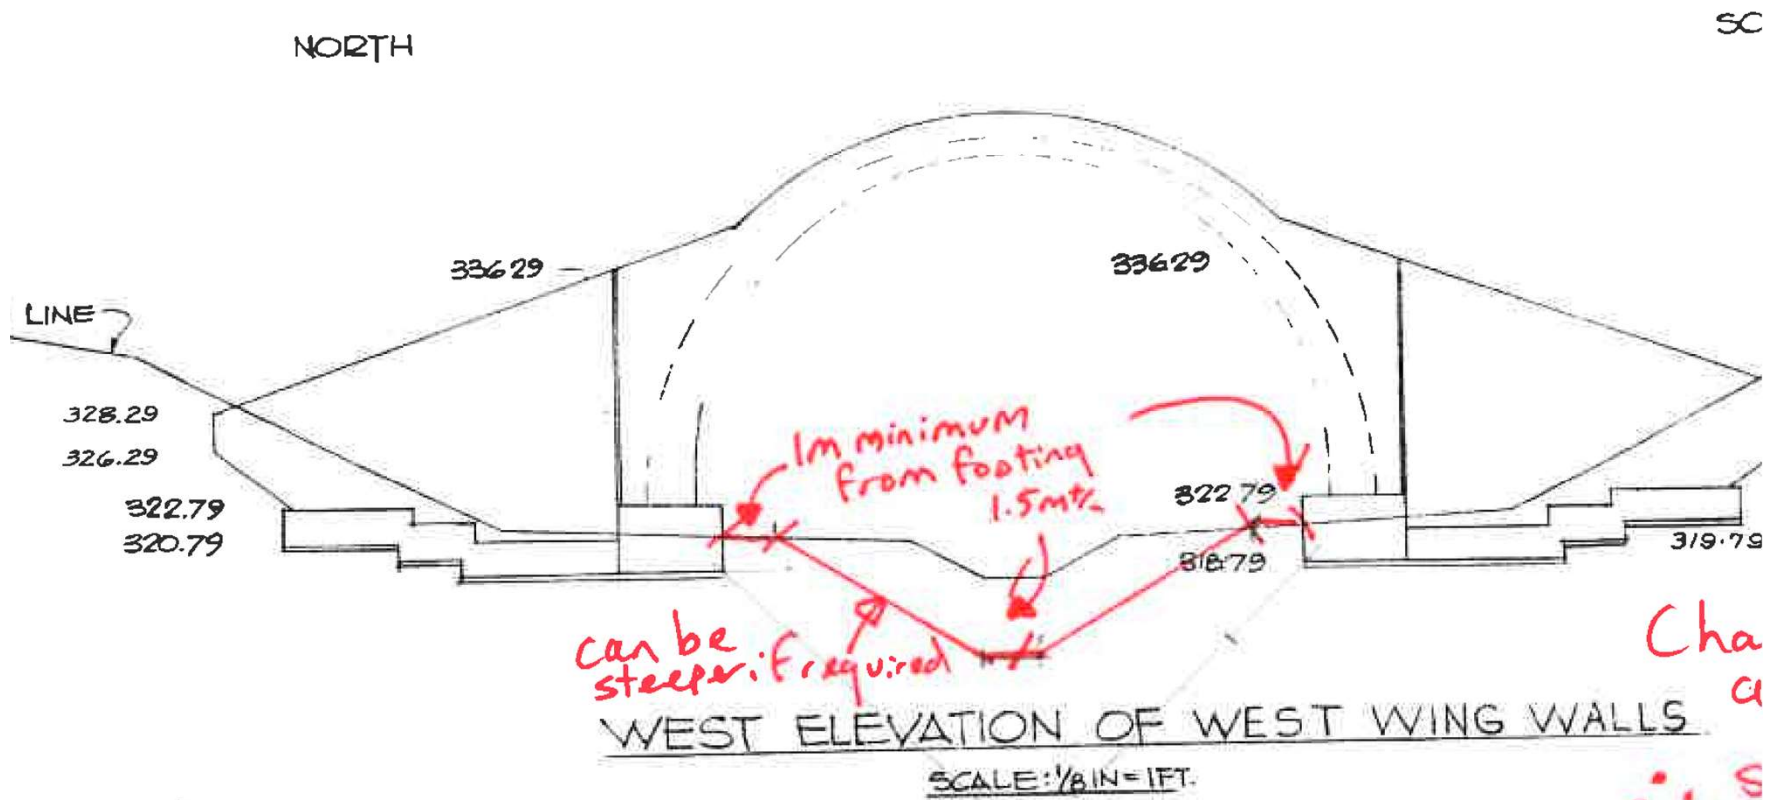 NORTH
336.29
336.29
LINE
328.29
326.29
322.79
320.79
1m minimum
from footing
1.5m +/-
322.79
318.79
319.79
can be
steeper if required
WEST ELEVATION OF WEST WING WALLS
SCALE: 1/8 IN = 1FT.